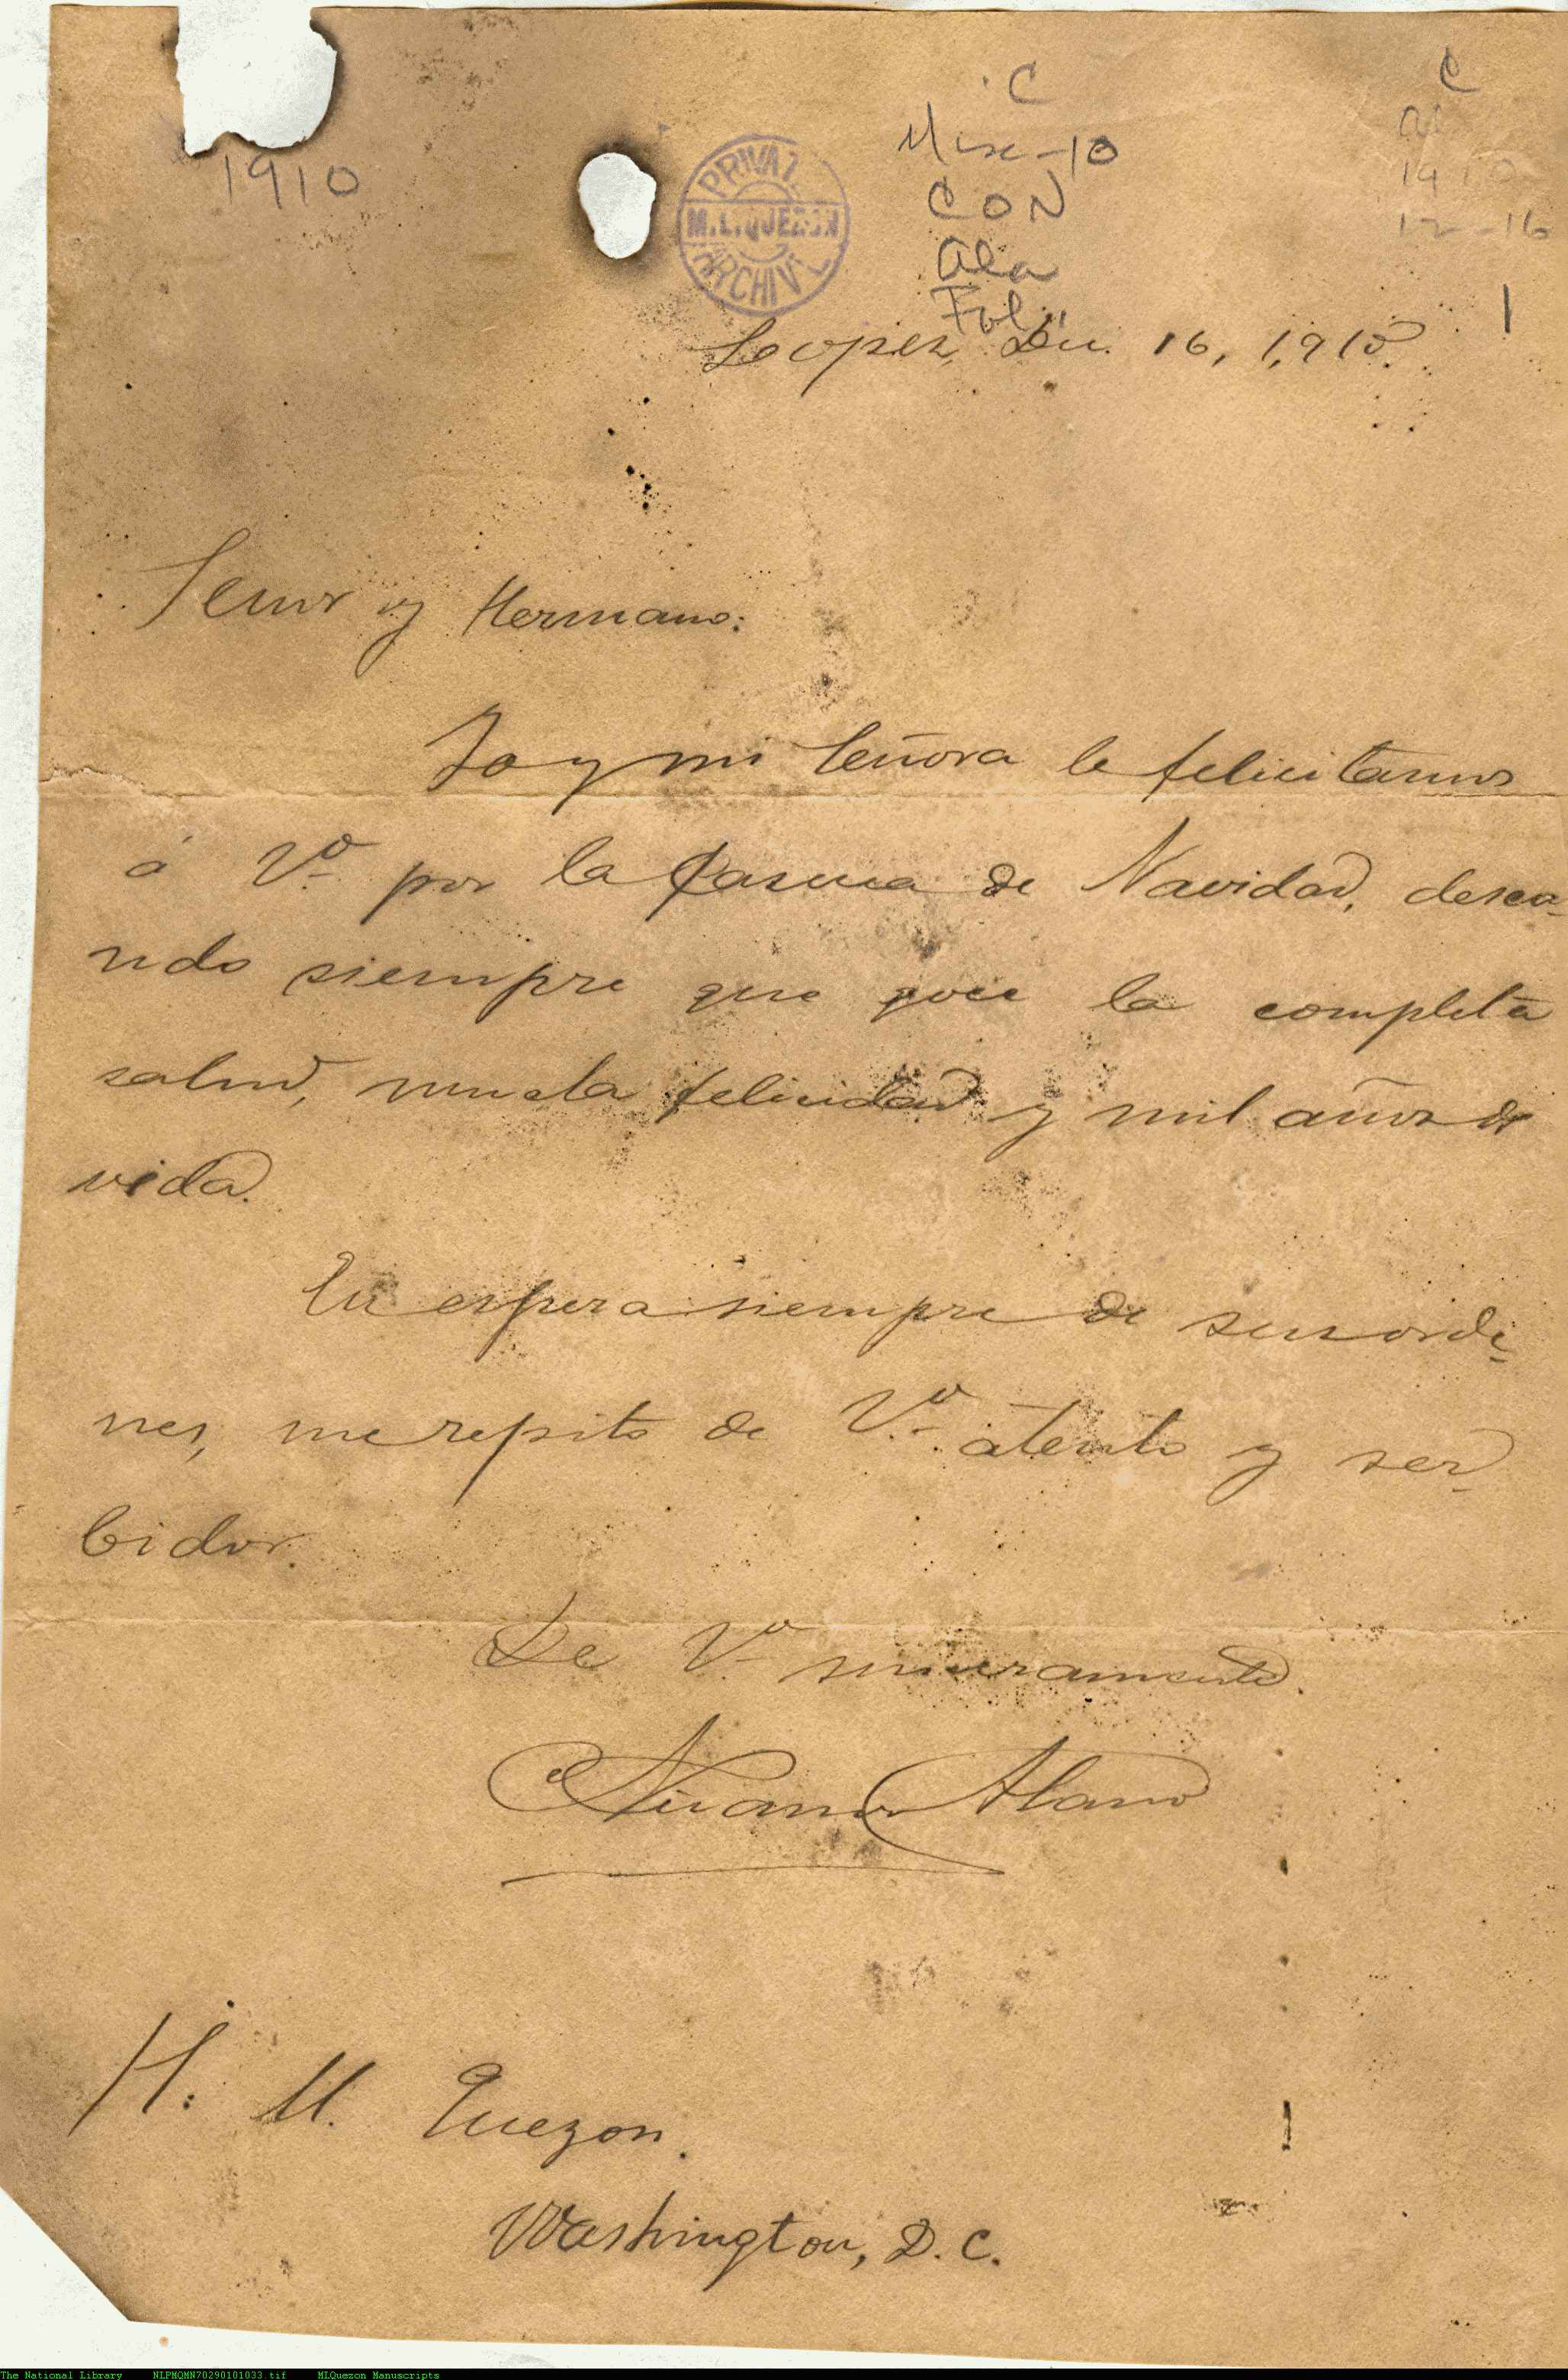 C
C
Misc-10
1910
1910
CON
12-16
PRIVATE
M.L.QUEZON
ARCHIVE
Ala
Fol.
1
Lopez, Dic. 16, 1,910.
Señor y Hermano:
Yo y mi Señora le felicitamos
á Vd. por la Pascua de Navidad, desea-
ndo siempre que goce la completa
salud, mucha felicidad y mil años de
vida.
En espera siempre de sus orde-
nes, me repito de Vd. atento y ser-
bidor.
De Vd. sinceramente.
Nicanor Alano
H. M. Quezon.
Washington, D.C.
The National Library NLPMQMN70290101033.tif MLQuezon Manuscripts